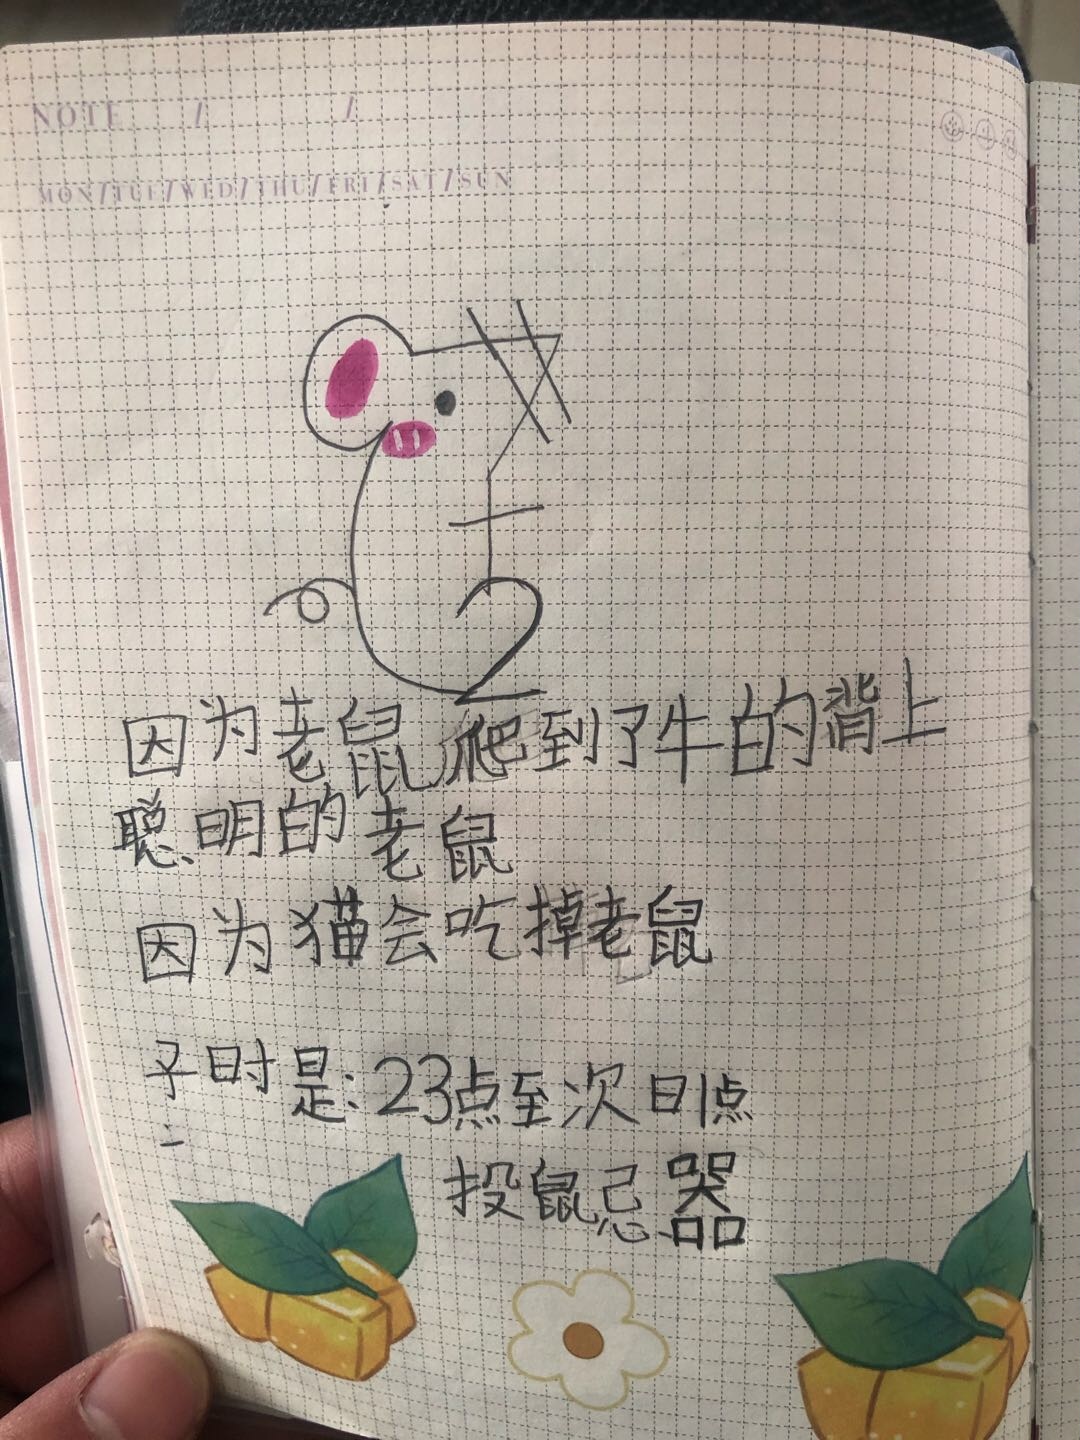 NOTE / /
MON/TUE/WED/THU/FRI/SAT/SUN
因为老鼠爬到了牛的背上
聪明的老鼠
因为猫会吃掉老鼠
子时是:23点至次日1点
投鼠忌器